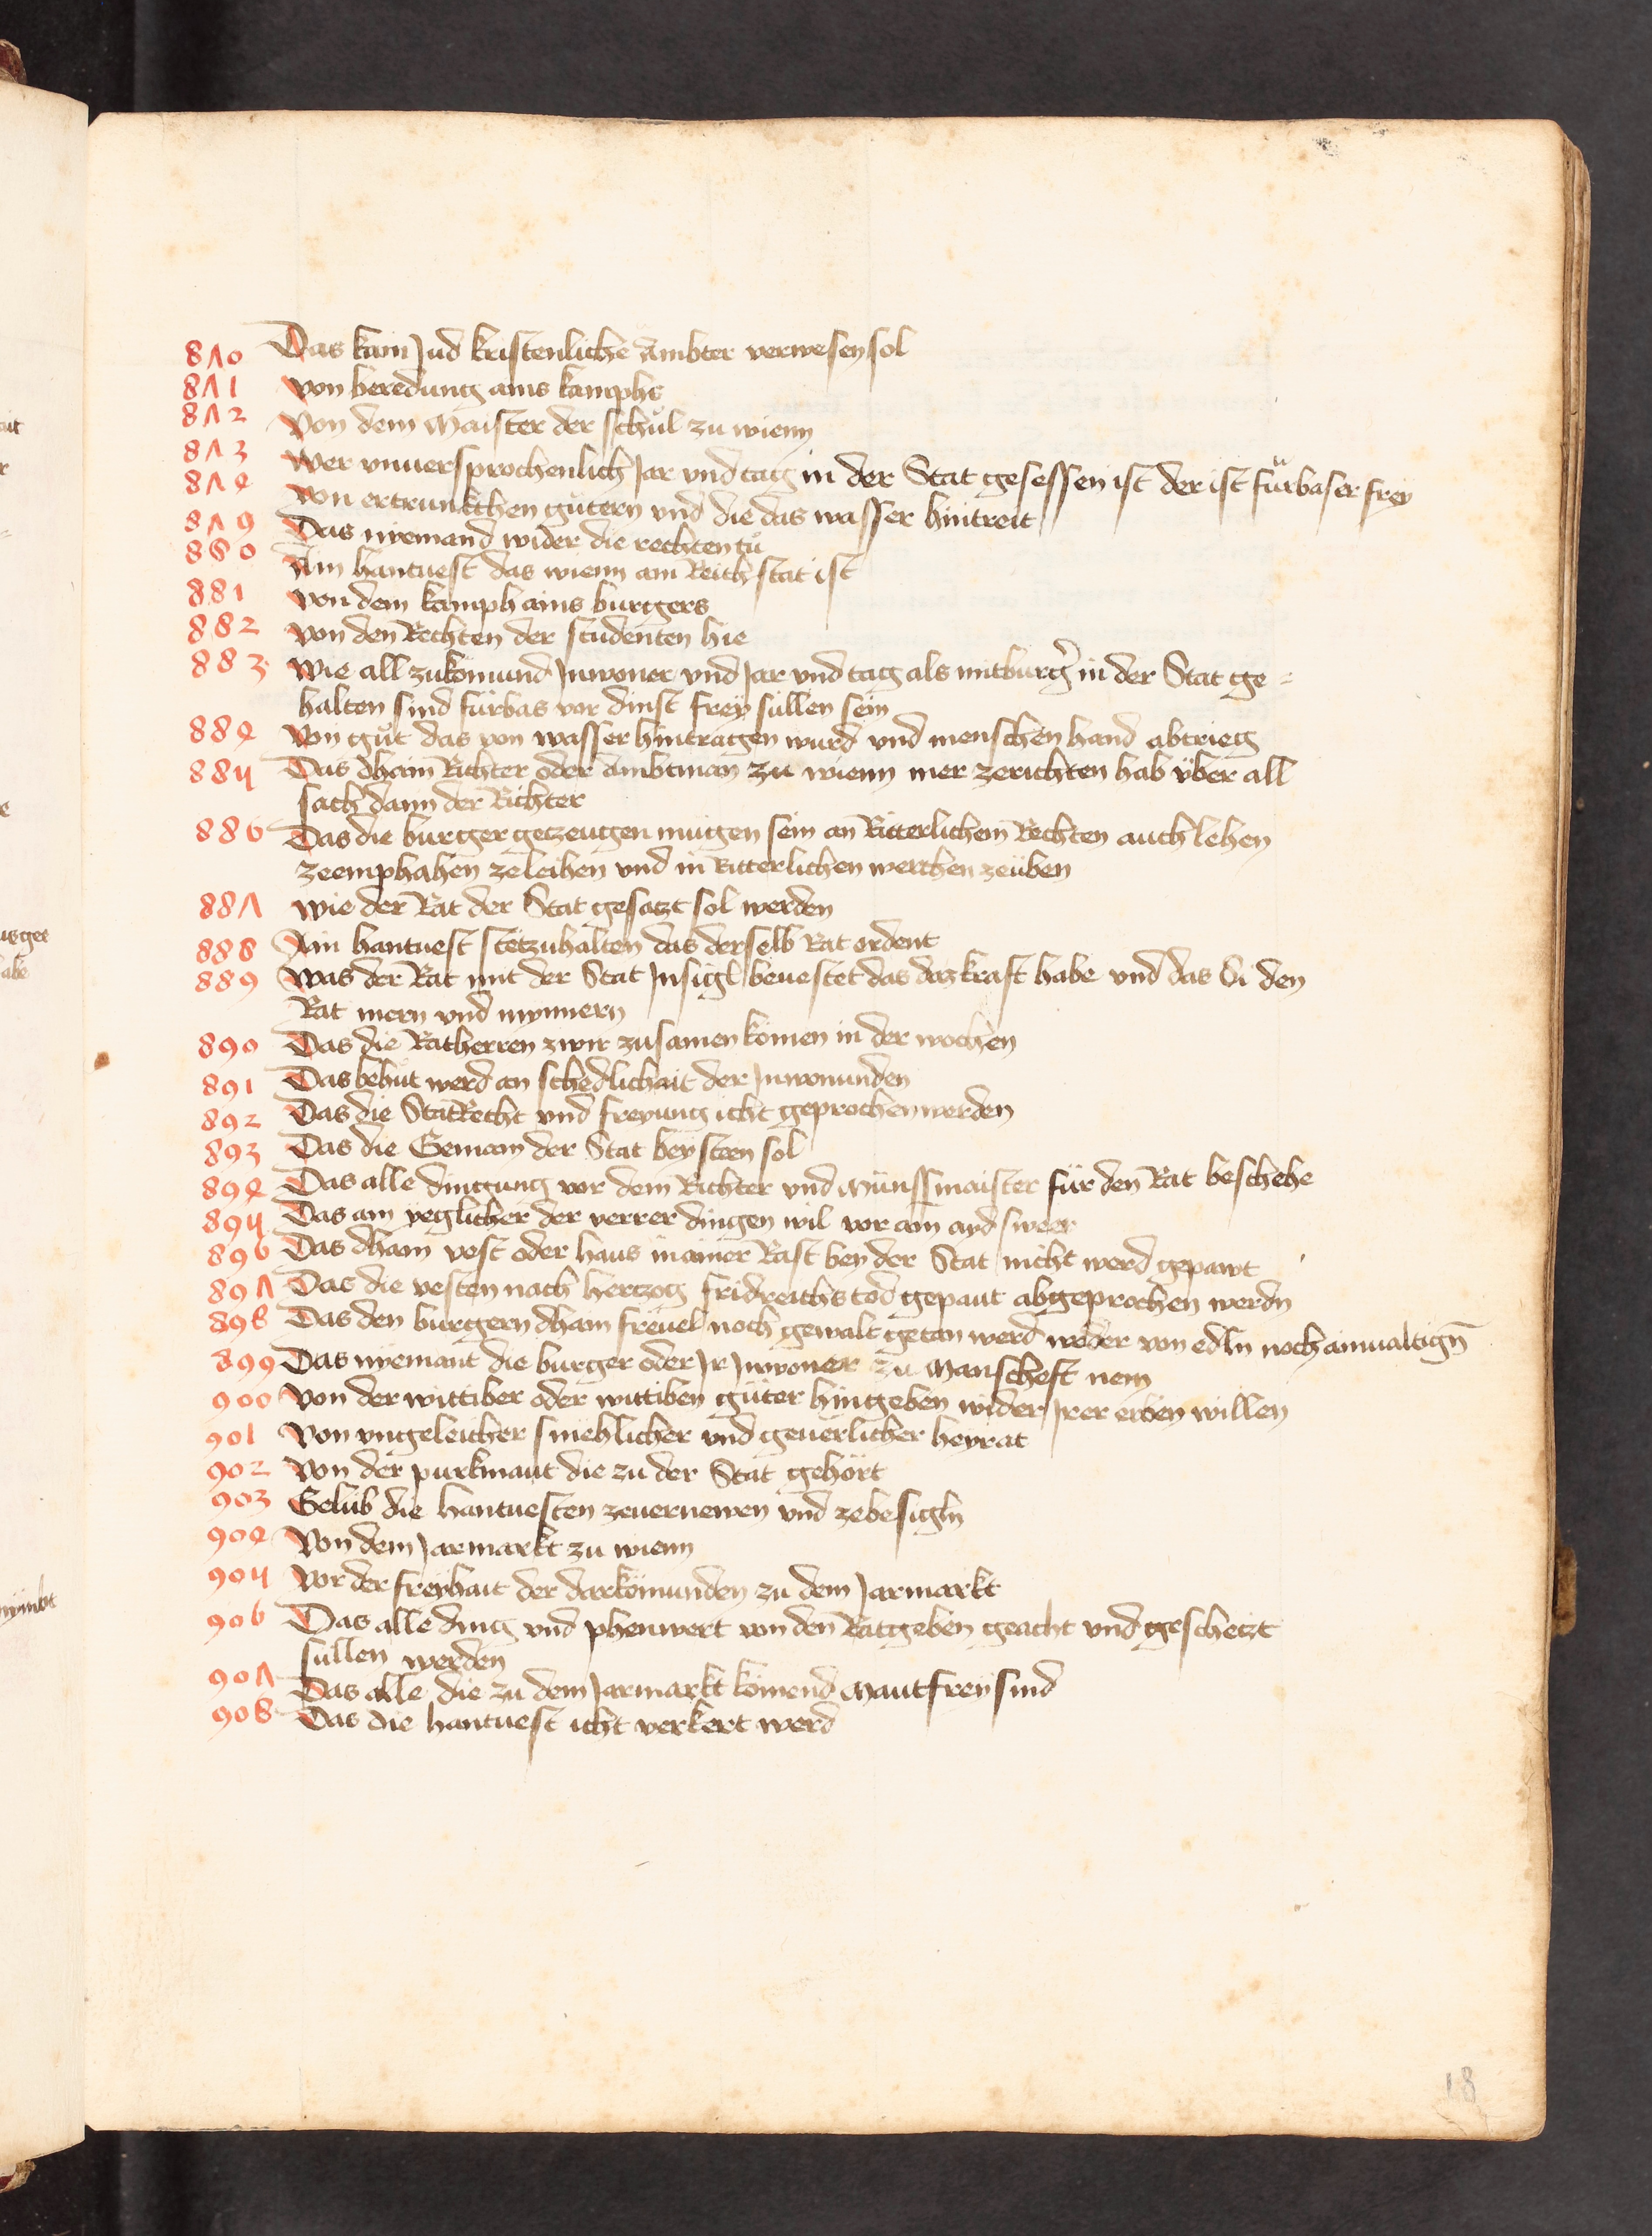 870 Das kain Jud kristenliche Ambter verwesen sol
871 von beredung ains kamphs
872 Von dem Maister der schůl zu wienn
873 Wer vnuersprochenlich Jar vnd tag in der Stat gesessen ist der ist fürbaser frey
874 von ertrunkchen gütern vnd die das wasser hintreit
879 Das nyemand wider die rechten tů
880 Ain hantuest das wienn ain Reich stat ist
881 von dem kamph ains burgers
882 von den Rechten der studenten hie
883 Wie all zukömund Inwoner vnd Jar vnd tag als mitburger in der Stat ge=
halten sind fürbas vor dinst frey süllen sein
884 Von gůt das von wasser hintragen wurd vnd menschen hand abtrieg
885 Das dhain Richter oder Ambtman zu wienn mer zerichten hab über all
sach dann der Richter
886 Das die burger getzeugen mügen sein an Ritterlichem Rechten auch lehen
zeemphahen zeleihen vnd in Ritterlichen werchen zeüben
887 Wie der Rat der Stat gesatzt sol werden
888 Ain hantuest stetzuhalten das derselb Rat ordent
889 Was der Rat mit der Stat Insigl beuestet das daz kraft habe vnd das Si den
Rat mern vnd mynnern
890 Das die Ratherren zwir zusamen komen in der wochen
891 Das behut werd an schedlichait der Inwonunden
892 Das die StatRecht vnd freyung icht geprochen werden
893 Das die Gemain der Stat beysteen sol
894 Das alle dingung vor dem Richter vnd Münssmaister für den Rat beschehe
895 Das ain yeglicher der verrer dingen wil vor ain ayd sweer
896 Das dhain vest oder haus in ainer Rast bey der Stat nicht werd gepawt
897 Das die vesten nach hertzog fridreichs tod gepaut abgeprochen werdn
898 Das den burgern dhain freuel noch gewalt getan werd weder von edln noch ainualtign
899 Das nyemant die burger oder Ir Inwoner zu Manscheft nem
900 Von der wittiber oder wittiben güter hingeben wider Irer erben willen
901 Von vngeleicher smehlicher vnd geuerlicher heyrat
902 Von der purkmaut die zu der Stat gehört
903 Gelüb die hantuesten zeuernewen vnd zebesigln
904 Von dem Jarmarkt zu wienn
905 Vor der freyhait der darkömunden zu dem Jarmarkt
906 Das alle ding vnd phenwert von den Ratgeben geacht vnd geschetzt
süllen werden
907 Das alle die zu dem Jarmarkt kömend Mautfrey sind
908 Das die hantuest icht verkert werd
18